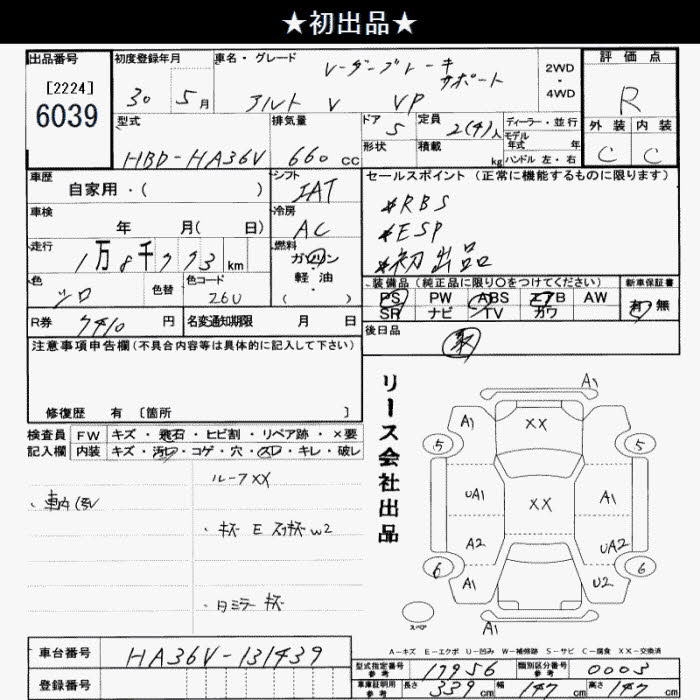 ★初出品★
出品番号
[2224]
6039
初度登録年月
30 5月
車名・グレード
レーダーブレーキ
サポート
アルト V VP
2WD
・
4WD
評価点
R
外装 内装
C C
型式
HBD-HA36V
排気量
660 cc
ドア 5
定員 2(4)人
ディーラー・並行
モデル
年式 年
形状
積載 kg
ハンドル 左・右
車歴
自家用・( )
シフト
IAT
車検
年 月( 日)
冷房
AC
走行
1万8千773km
燃料
ガソリン
軽・油
( )
色
シロ
色替
色コード
26U
R券 7410円
名変通知期限 月 日
セールスポイント(正常に機能するものに限ります)
*RBS
*ESP
*初出品
装備品(純正品に限り○をつけてください)
新車保証書
PS PW ABS エアB AW
SR ナビ TV カワ
有・無
後日品
取
注意事項申告欄(不具合内容等は具体的に記入して下さい)
修復歴 有 〔箇所 〕
検査員 FW キズ・飛石・ヒビ割・リペア跡・×要
記入欄 内装 キズ・汚レ・コゲ・穴・スレ・キレ・破レ
ルーフXX
・車内
・キズ E スリキズ W2
・日ミラーキズ
リース会社出品
A1
A1
XX
5
5
UA1
XX
A1
A2
UA2
6
6
A1
U2
スペア
A1
A-キズ E-エクボ U-凹み W-補修跡 S-サビ C-腐食 XX-交換済
車台番号 HA36V-131439
登録番号
型式指定番号
参考
17956
類別区分番号
参考
0003
車庫証明用
参考
長さ 339cm 幅 147cm 高さ 147cm